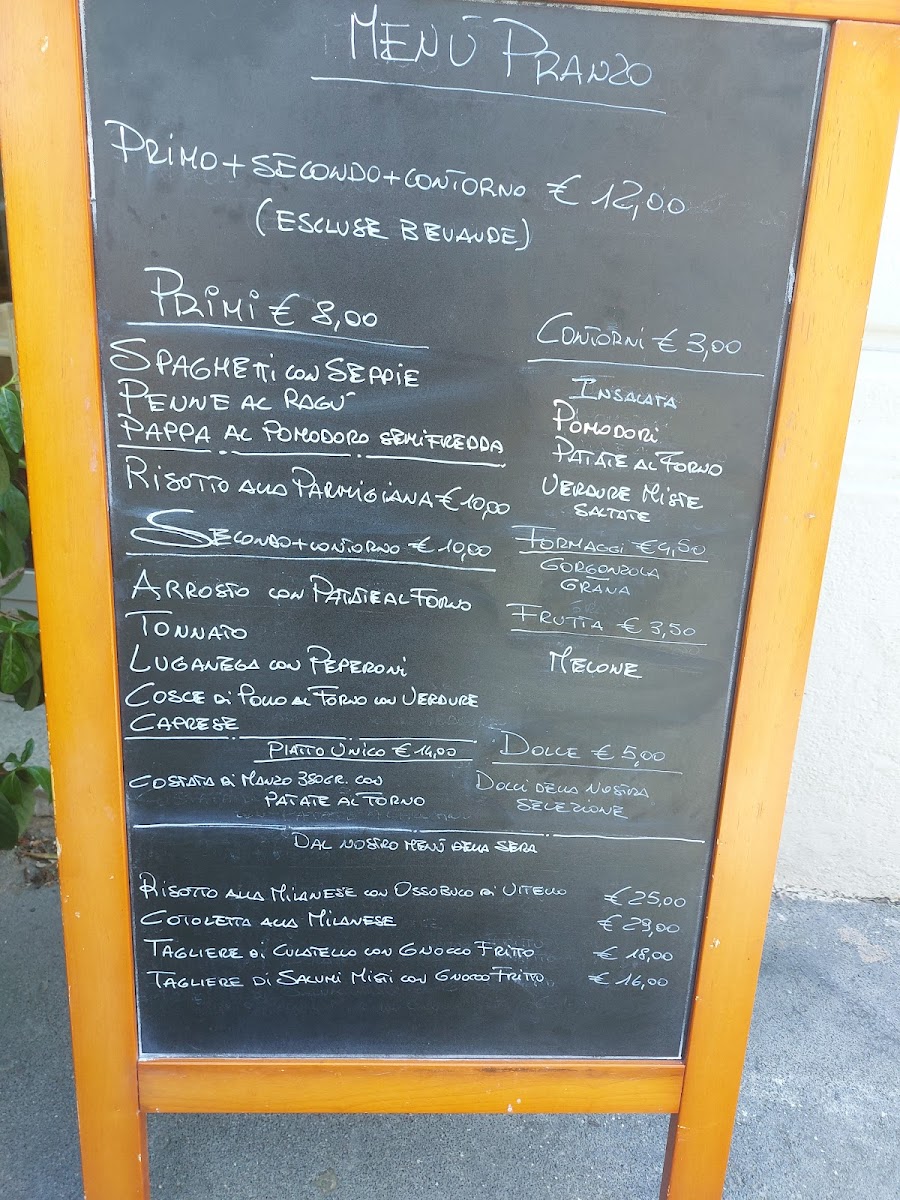 MENÙ PRANZO
PRIMO + SECONDO + CONTORNO € 12,00
(ESCLUSE BEVANDE)
PRIMI € 8,00
SPAGHETTI CON SEPPIE
PENNE AL RAGÙ
PAPPA AL POMODORO SEMIFREDDA
RISOTTO ALLA PARMIGIANA € 10,00
SECONDO + CONTORNO € 10,00
ARROSTO CON PATATE AL FORNO
TONNATO
LUGANEGA CON PEPERONI
COSCE DI POLLO AL FORNO CON VERDURE
CAPRESE
PIATTO UNICO € 14,00
COSTATA DI MANZO 350GR. CON
PATATE AL FORNO
CONTORNI € 3,00
INSALATA
POMODORI
PATATE AL FORNO
VERDURE MISTE
SALTATE
FORMAGGI € 4,50
GORGONZOLA
GRANA
FRUTTA € 3,50
MELONE
DOLCE € 5,00
DOLCI DELLA NOSTRA
SELEZIONE
DAL NOSTRO MENÙ DELLA SERA
RISOTTO ALLA MILANESE CON OSSOBUCO DI VITELLO € 25,00
COTOLETTA ALLA MILANESE € 29,00
TAGLIERE DI CULATELLO CON GNOCCO FRITTO € 18,00
TAGLIERE DI SALUMI MISTI CON GNOCCO FRITTO € 16,00